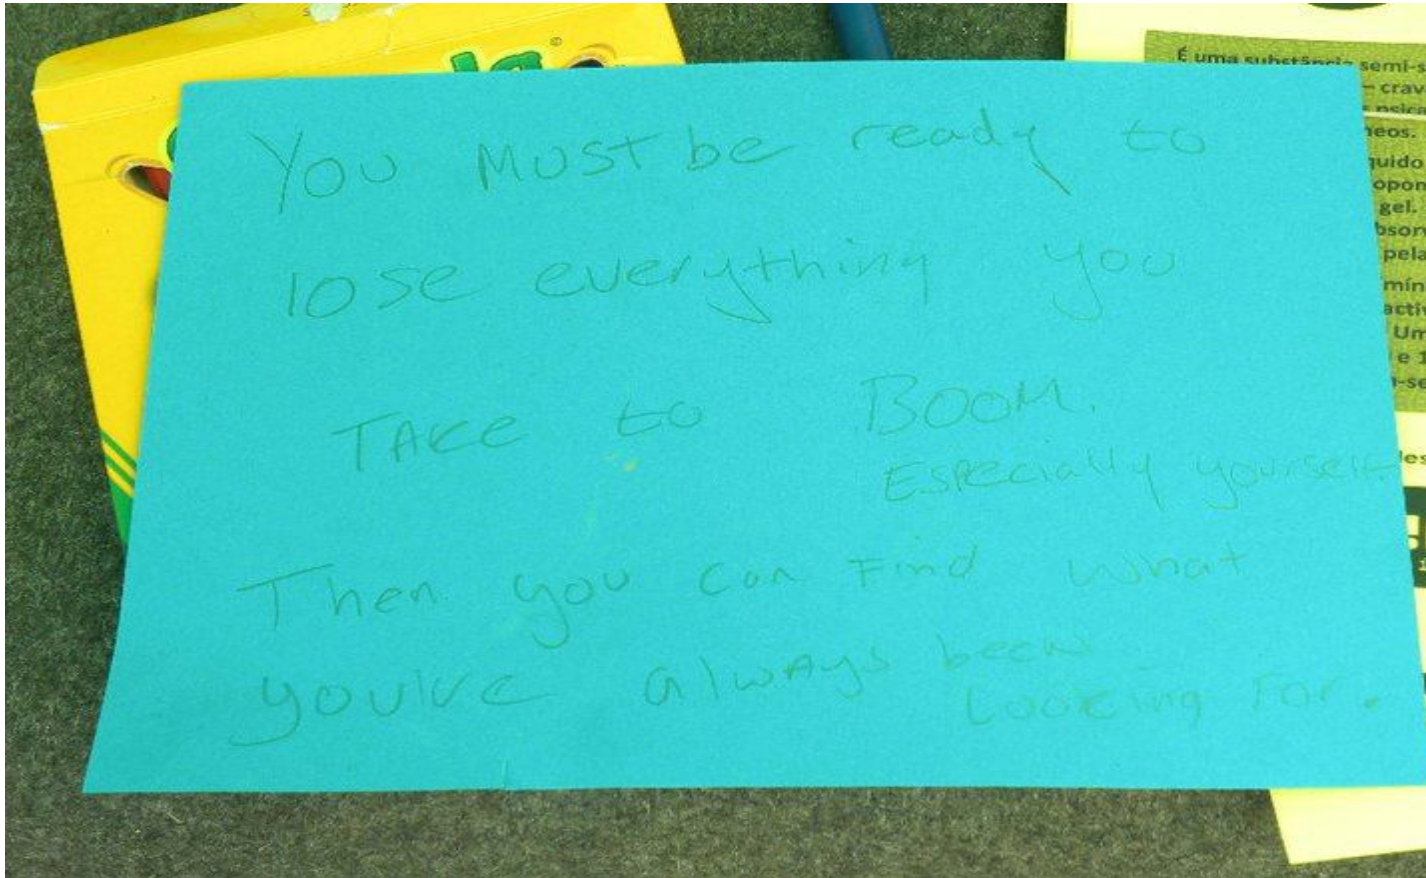 You MUST be ready to
lose everything you
TAKE to BOOM.
Especially yourself.
Then you can Find what
you've always been
Looking For.
É uma substância semi-s
– crav
neos.
quido
opon
gel.
bsorv
pela
mín
activ
Um
e 1
-se
la